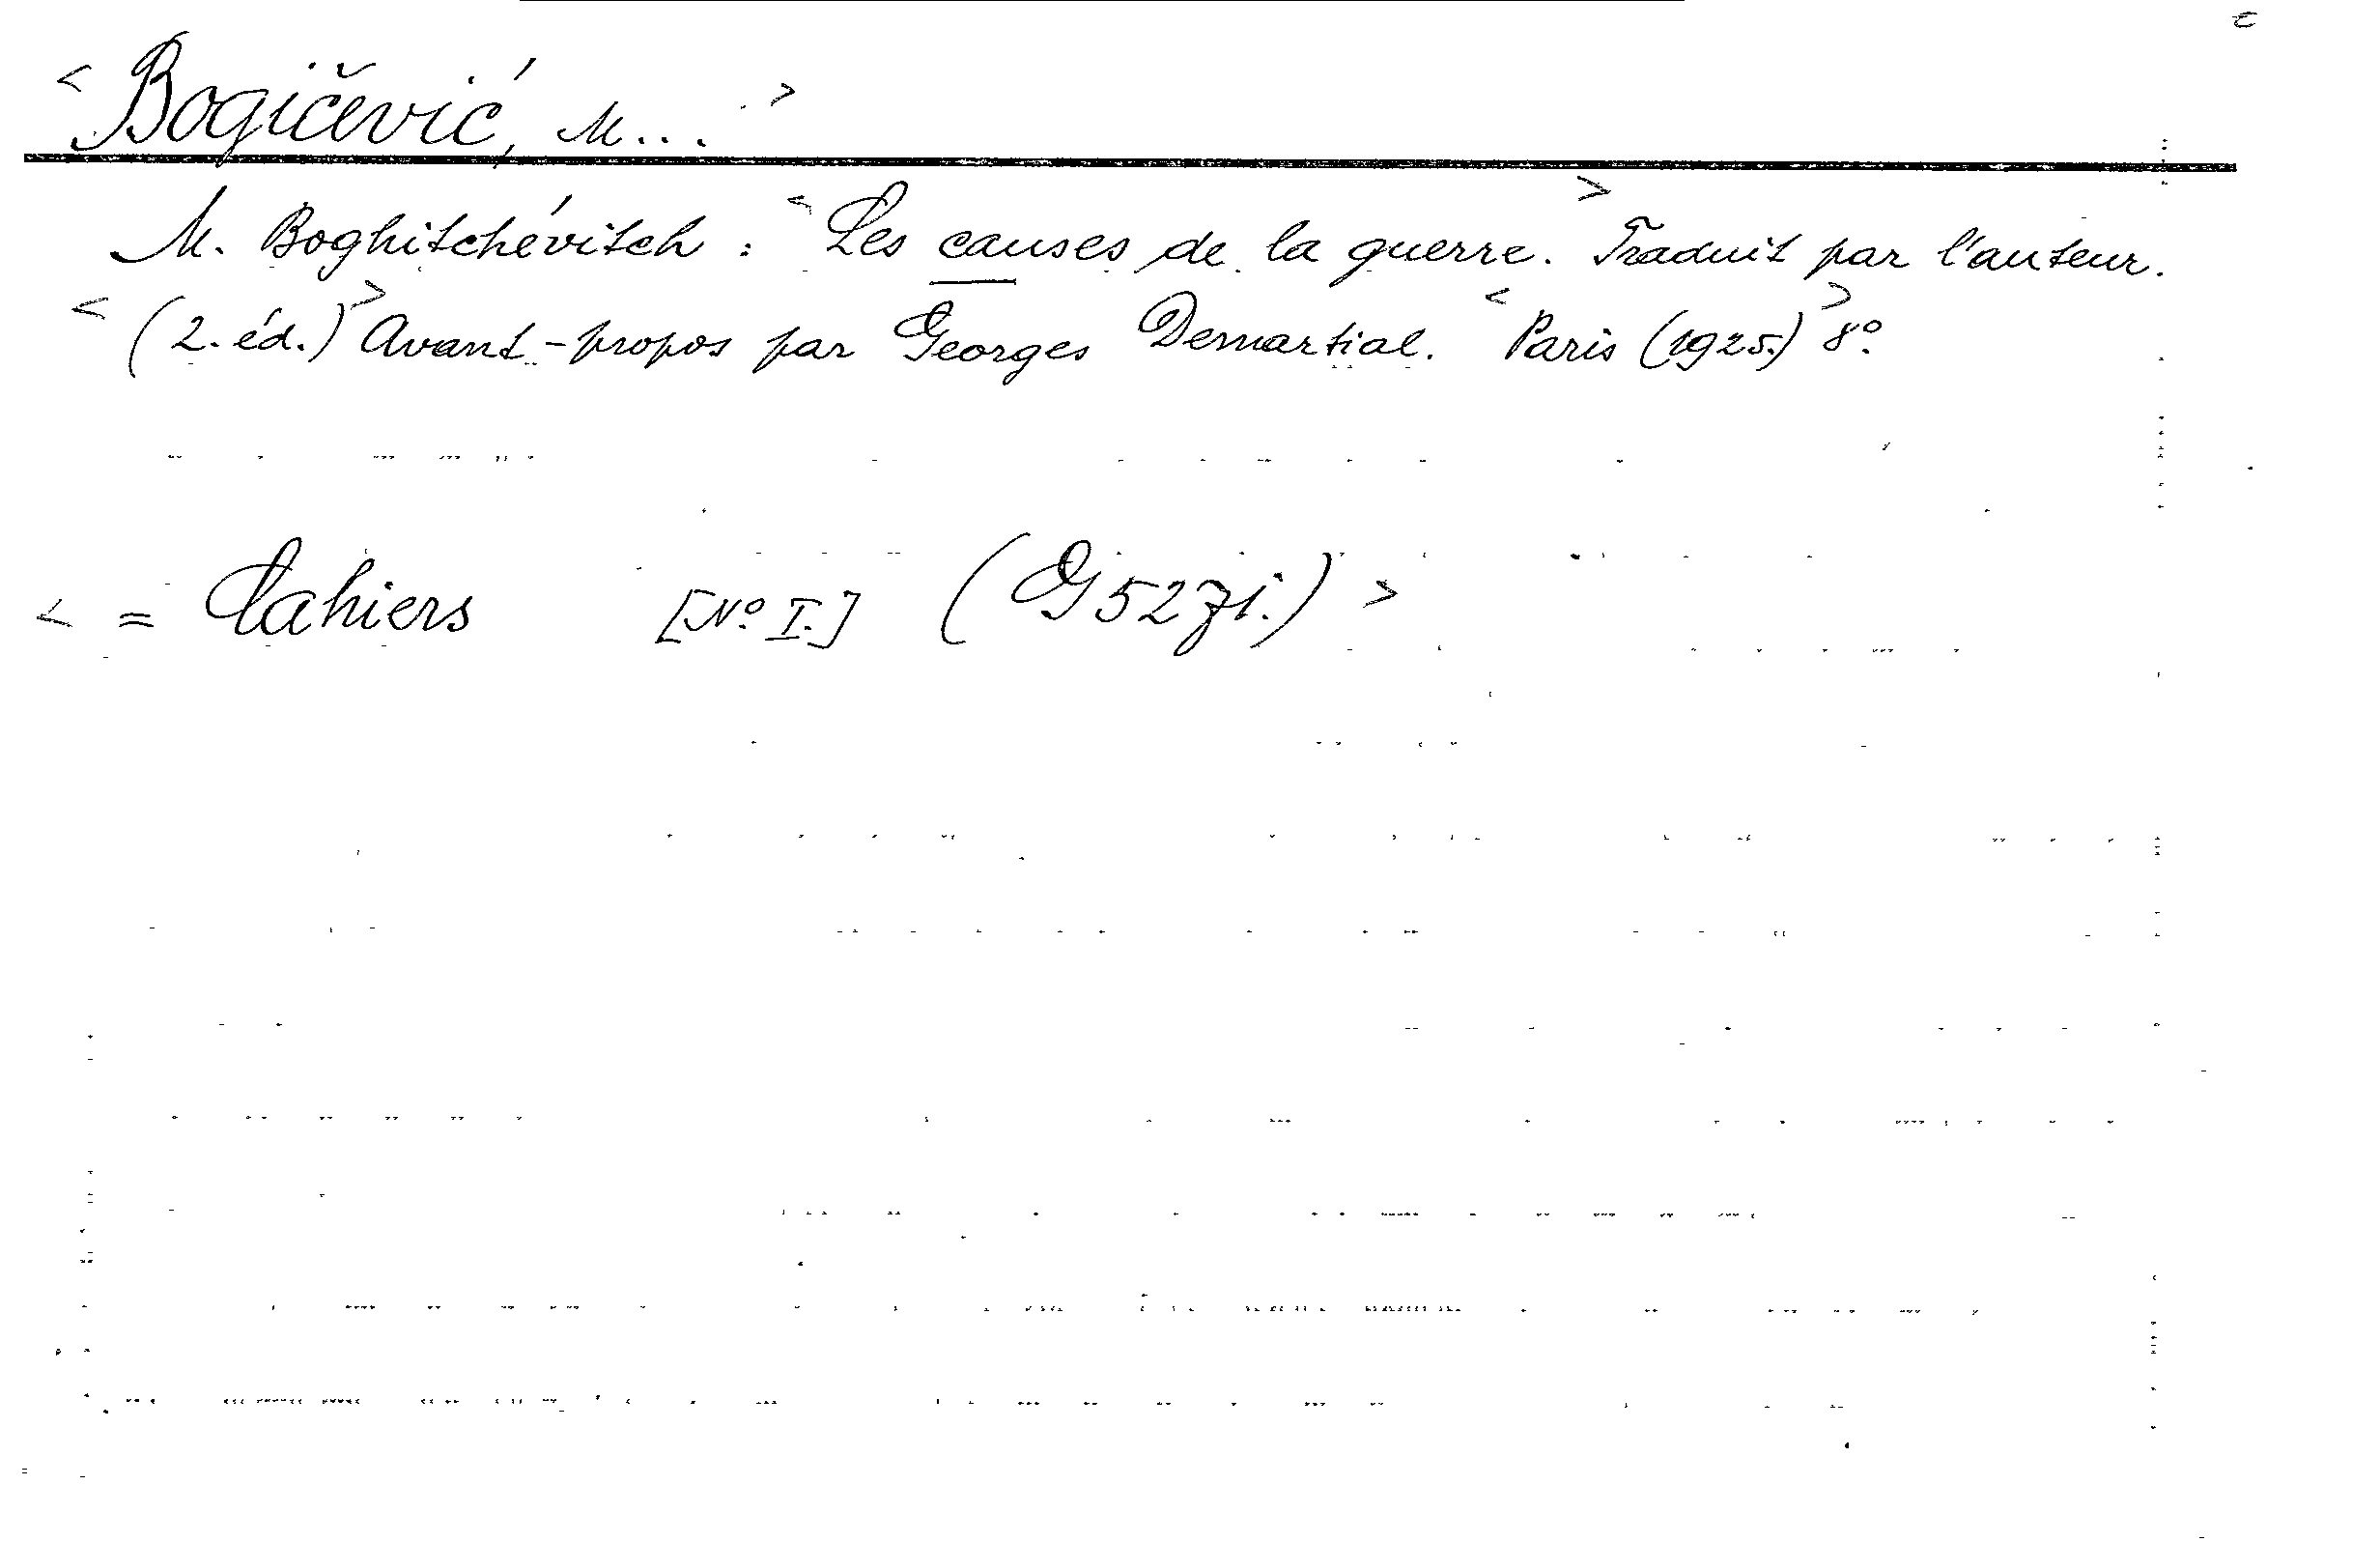 < Bogičević, M... >
M. Boghitchévitch : < Les causes de la guerre. > Traduit par l'auteur.
< (2. éd.) > Avant-propos par Georges Demartial. < Paris (1925.) > 8º.
< = Cahiers [Nº I.] (G 52 zi.) >